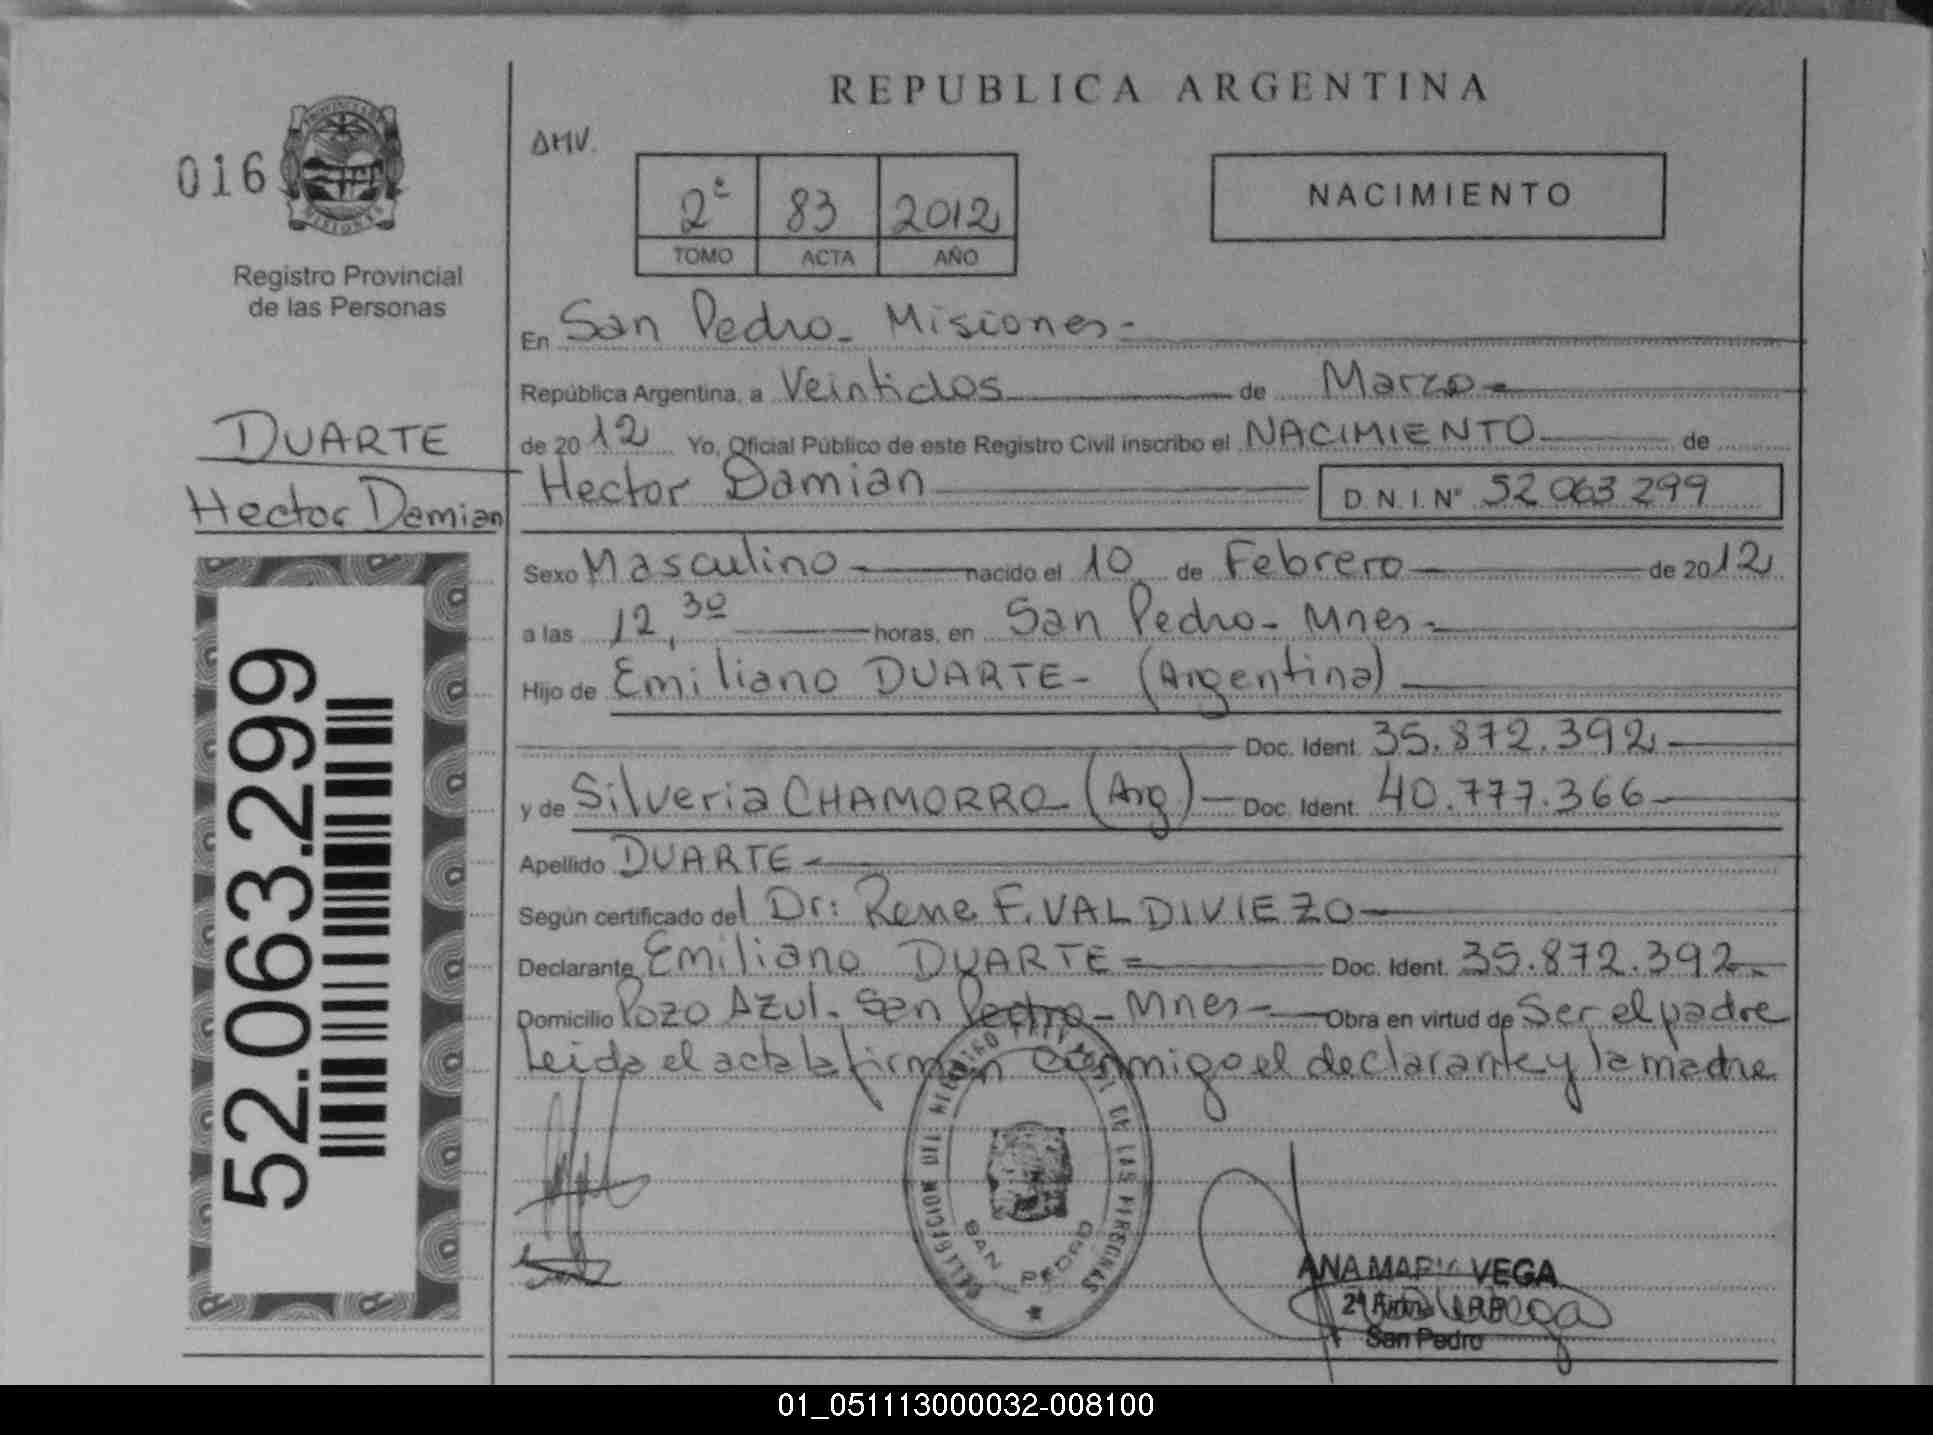 REPUBLICA ARGENTINA
016
AMV.
2º 83 2012
TOMO ACTA AÑO
NACIMIENTO
PROVINCIA DE
MISIONES
Registro Provincial
de las Personas
En San Pedro - Misiones -
República Argentina, a Veintidos de Marzo -
de 2012 Yo, Oficial Público de este Registro Civil inscribo el NACIMIENTO de
DUARTE
Hector Damian
Hector Damian D.N.I. Nº 52 063 299
Sexo Masculino nacido el 10 de Febrero de 2012
a las 12,30 horas, en San Pedro - Mnes -
Hijo de Emiliano DUARTE - (Argentina)
Doc. Ident. 35.872.392
y de Silveria CHAMORRO (Arg.) Doc. Ident. 40.777.366
Apellido DUARTE -
Según certificado del Dr: Rene F. VALDIVIEZO
Declarante Emiliano DUARTE = Doc. Ident. 35.872.392
Domicilio Pozo Azul - San Pedro - Mnes - Obra en virtud de Ser el padre
Leida el acta la firman conmigo el declarante y la madre
52.063.299
DELEGACION DEL REGISTRO DE LAS PERSONAS
SAN PEDRO
ANA MARIA VEGA
San Pedro
01_051113000032-008100